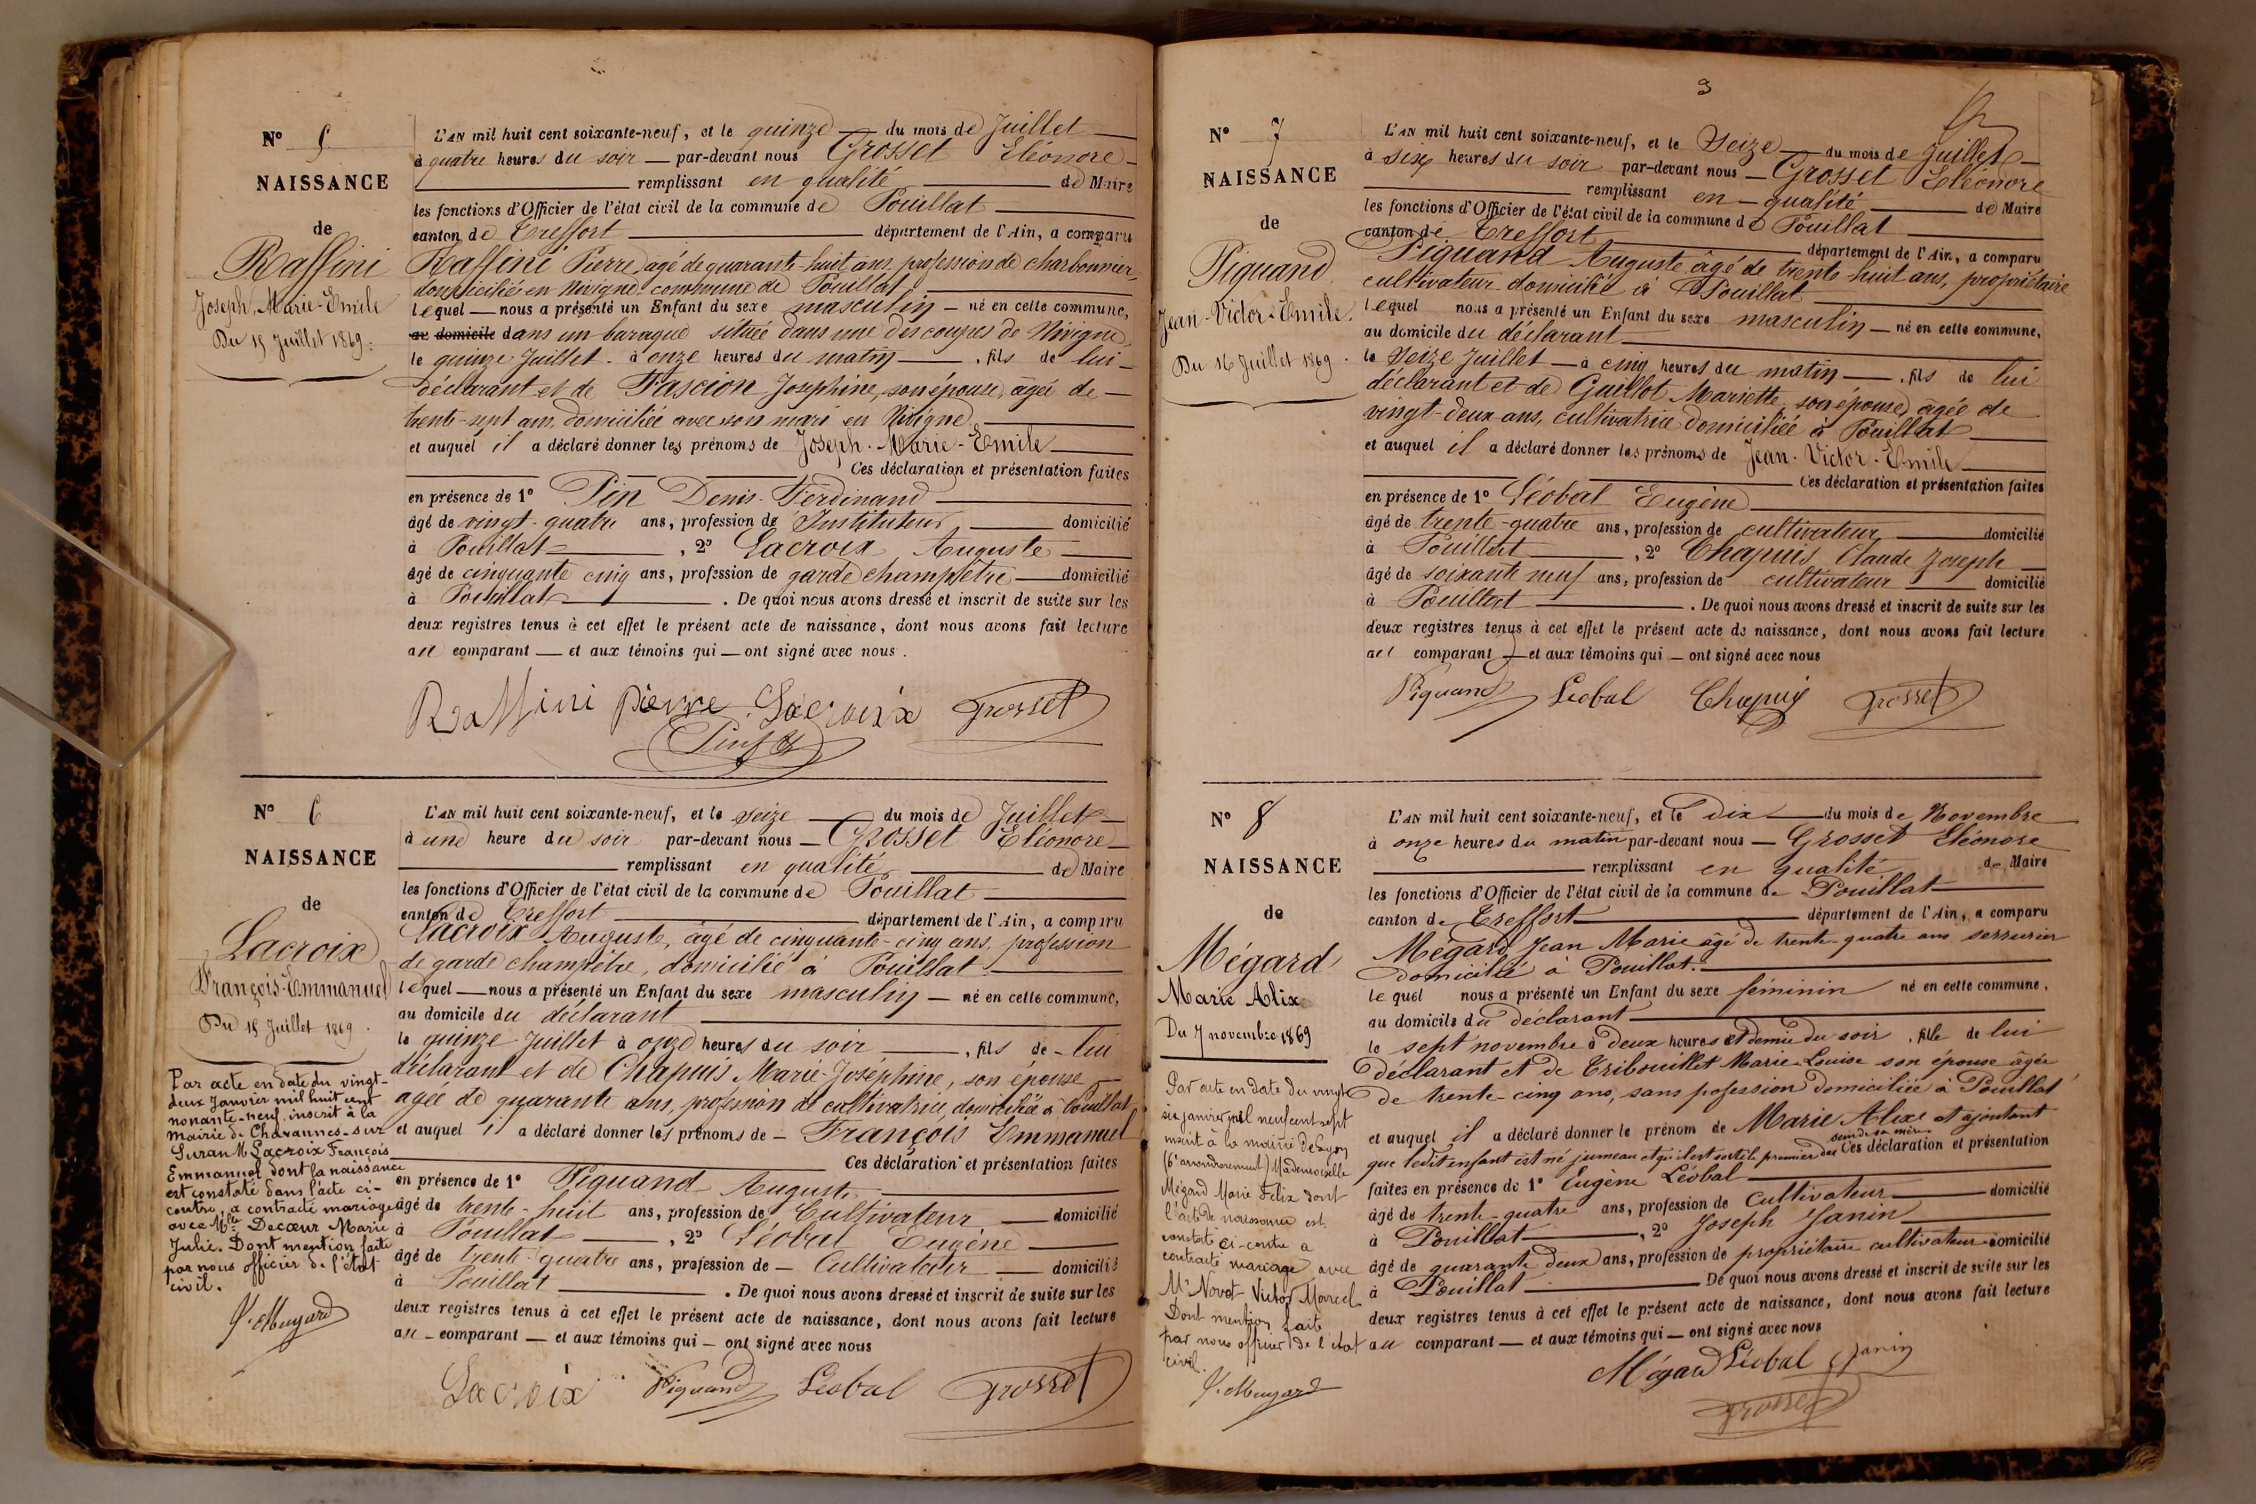 N° 5
NAISSANCE
de
Raffini
Joseph, Marie-Emile
Du 15 Juillet 1869.
L'AN mil huit cent soixante-neuf, et le quinze du mois de Juillet
à quatre heures du soir par-devant nous Grosset Eléonore
remplissant en qualité de Maire
les fonctions d'Officier de l'état civil de la commune de Pouillat
canton de Treffort département de l'Ain, a comparu
Raffini Pierre, agé de quarante-huit ans, profession de charbonnier
domicilié en Nivigne commune de Pouillat
lequel nous a présenté un Enfant du sexe masculin né en cette commune,
au domicile dans un baraque située dans une des coupes de Nivigne
le quinze Juillet à onze heures du matin, fils de lui
déclarant et de Fascion Josephine, son épouse, âgée de
trente-sept ans, domiciliée avec son mari en Nivigne
et auquel il a déclaré donner les prénoms de Joseph-Marie-Emile
Ces déclaration et présentation faites
en présence de 1° Pin Denis-Ferdinand
âgé de vingt-quatre ans, profession de Instituteur domicilié
à Pouillat, 2° Lacroix Auguste
âgé de cinquante cinq ans, profession de garde champêtre domicilié
à Pouillat. De quoi nous avons dressé et inscrit de suite sur les
deux registres tenus à cet effet le présent acte de naissance, dont nous avons fait lecture
au comparant et aux témoins qui ont signé avec nous.
Raffini Pierre Lacroix Grosset
Pin
N° 6
NAISSANCE
de
Lacroix
François-Emmanuel
Du 15 Juillet 1869.
Par acte en date du vingt-
deux Janvier mil huit cent
nonante-neuf, inscrit à la
mairie de Chavannes-sur
Suran M. Lacroix François
Emmanuel dont la naissance
est constaté dans l'acte ci-
contre, a contracté mariage
avec Mlle Decœur Marie
Julie. Dont mention faite
par nous officier de l'état
civil.
L'AN mil huit cent soixante-neuf, et le seize du mois de Juillet
à une heure du soir par-devant nous Grosset Eléonore
remplissant en qualité de Maire
les fonctions d'Officier de l'état civil de la commune de Pouillat
canton de Treffort département de l'Ain, a comparu
Lacroix Auguste, âgé de cinquante-cinq ans, profession
de garde champêtre, domicilié à Pouillat
lequel nous a présenté un Enfant du sexe masculin né en cette commune,
au domicile du déclarant
le quinze Juillet à onze heures du soir, fils de lui
déclarant et de Chapuis Marie-Joséphine, son épouse
agée de quarante ans, profession de cultivatrice, domiciliée à Pouillat
et auquel il a déclaré donner les prénoms de François Emmanuel
Ces déclaration et présentation faites
en présence de 1° Piquand Auguste
âgé de trente-huit ans, profession de Cultivateur domicilié
à Pouillat, 2° Léobal Eugène
âgé de trente-quatre ans, profession de Cultivateur domicilié
à Pouillat. De quoi nous avons dressé et inscrit de suite sur les
deux registres tenus à cet effet le présent acte de naissance, dont nous avons fait lecture
au comparant et aux témoins qui ont signé avec nous
Lacroix Piquand Léobal Grosset
3
N° 7
NAISSANCE
de
Piquand
Jean-Victor-Emile.
Du 16 Juillet 1869.
L'AN mil huit cent soixante-neuf, et le Seize du mois de Juillet
à six heures du soir par-devant nous Grosset Eléonore
remplissant en qualité de Maire
les fonctions d'Officier de l'état civil de la commune de Pouillat
canton de Treffort département de l'Ain, a comparu
Piquand Auguste âgé de trente-huit ans, propriétaire
cultivateur domicilié à Pouillat
lequel nous a présenté un Enfant du sexe masculin né en cette commune,
au domicile du déclarant
le Seize Juillet à cinq heures du matin, fils de lui
déclarant et de Guillot Mariette, son épouse, âgée de
vingt-deux ans, cultivatrice domiciliée à Pouillat
et auquel il a déclaré donner les prénoms de Jean-Victor-Emile
Ces déclaration et présentation faites
en présence de 1° Léobal Eugène
âgé de trente-quatre ans, profession de cultivateur domicilié
à Pouillat, 2° Chapuis Claude Joseph
âgé de soixante neuf ans, profession de cultivateur domicilié
à Pouillat. De quoi nous avons dressé et inscrit de suite sur les
deux registres tenus à cet effet le présent acte de naissance, dont nous avons fait lecture
au comparant et aux témoins qui ont signé avec nous
Piquand Léobal Chapuis Grosset
N° 8
NAISSANCE
de
Mégard
Marie Alix
Du 7 novembre 1869
Par acte en date du vingt
six janvier mil neuf cent sept
inscrit à la mairie de Lyon
(6e arrondissement) Mademoiselle
Mégard Marie Felix dont
l'acte de naissance est
constaté ci-contre a
contracté mariage avec
Mr Novet Victor Marcel
Dont mention faite
par nous officier de l'état
civil.
L'AN mil huit cent soixante-neuf, et le Dix du mois de Novembre
à onze heures du matin par-devant nous Grosset Eléonore
remplissant en qualité de Maire
les fonctions d'Officier de l'état civil de la commune de Pouillat
canton de Treffort département de l'Ain, a comparu
Mégard Jean Marie âgé de trente-quatre ans serrurier
domicilié à Pouillat.
lequel nous a présenté un Enfant du sexe féminin né en cette commune,
au domicile du déclarant
le sept novembre à deux heures et demie du soir, fille de lui
déclarant et de Tribouillet Marie-Louise son épouse âgée
de trente-cinq ans, sans profession domiciliée à Pouillat
et auquel il a déclaré donner le prénom de Marie Alix et ajoutant
que ledit enfant est né jumeau et qu'il est sorti le premier du sein de sa mère Ces déclaration et présentation
faites en présence de 1° Eugène Léobal
âgé de trente-quatre ans, profession de Cultivateur domicilié
à Pouillat, 2° Joseph Janin
âgé de quarante deux ans, profession de propriétaire cultivateur domicilié
à Pouillat De quoi nous avons dressé et inscrit de suite sur les
deux registres tenus à cet effet le présent acte de naissance, dont nous avons fait lecture
au comparant et aux témoins qui ont signé avec nous
Mégard Léobal Janin
Grosset